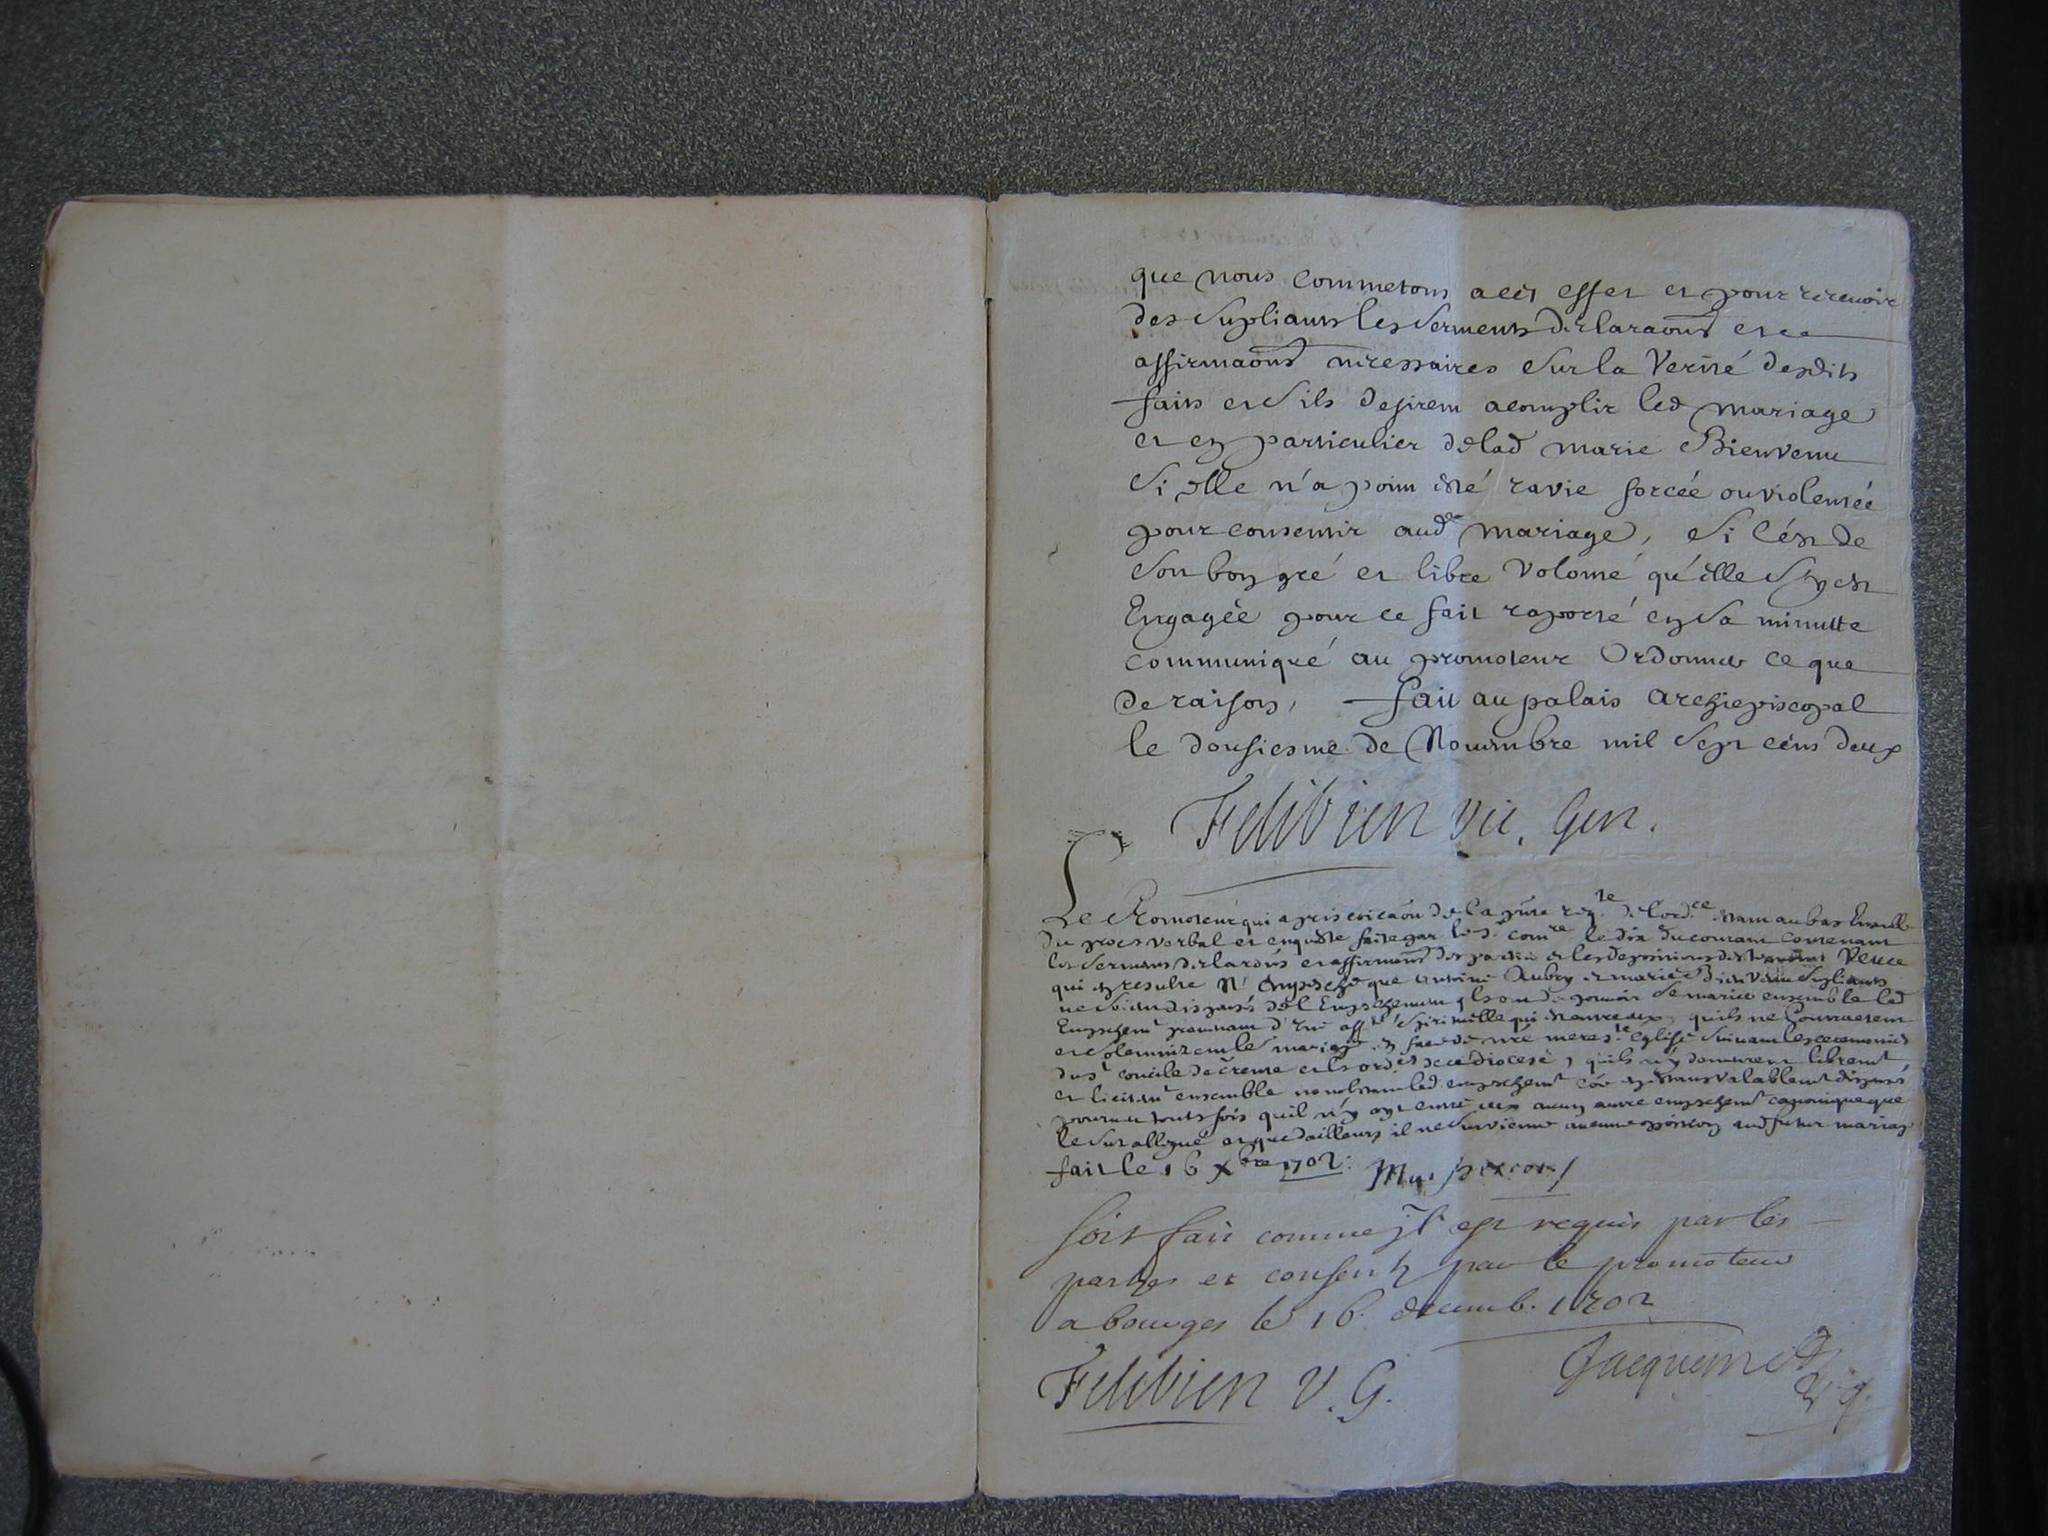 que nous commetons a cet effet et pour recevoir
des supliants les serments declaraons et
affirmaons necessaires sur la verité desdits
faits et s'ils desirent acomplir led mariage
et en particulier de lad marie Bienvenu
si elle n'a point esté ravie forcée ou violentée
pour consentir aud mariage, si c'est de
son bon gré et libre volonté qu'elle s'y est
Engagée pour ce fait raporté en sa minutte
communiqué au promoteur Ordonner ce que
de raison, fait au palais archiepiscopal
le dousiesme de Novembre mil sept cens deux
Felibien Vic. Gen.
Le Promoteur qui a pris coicaon de la pnte reqte de l'ordce estant au bas Ensemble
du proces verbal et enqueste faite par led comre le dix du courant contenant
les sermens declaraons et affirmaons des parties et les depositions des temoins Veu ce
qui en resulte N'Empesche que antoine Aubry et marie Bienvenu supliants
ne soient dispensés de l'Empeschement qu'ils ont de pouvoir se marier ensemble led
Empeschemt provenant d'une afftė spirituelle qui est entre eux, qu'ils ne Contractent
et solemnizent le mariage en face de nre mere ste Eglise suivant les ceremonies
du st concile de trente et les ordces de ce diocese, qu'ils n'y demeurent libremt
et licitemt ensemble nonobstant led empeschemt côe en estans valablemt dispensés
pourveu toutefois qu'il n'y ayt entre eux aucun autre empeschemt canonique que
le sus allegué et que d'ailleurs il ne survienne aucune opposition aud futur mariage
fait le 16 Xbre 1702.
soit fait comme jl est requis par les
partyes et consenty par le promoteur
a bourges le 16. decemb. 1702
Felibien V. G.
Jacquemet
V. g.